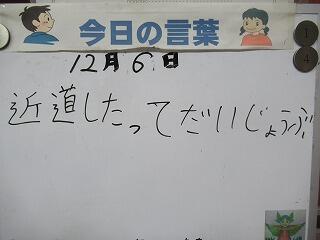 今日の言葉
12月6日
近道したってだいじょうぶ